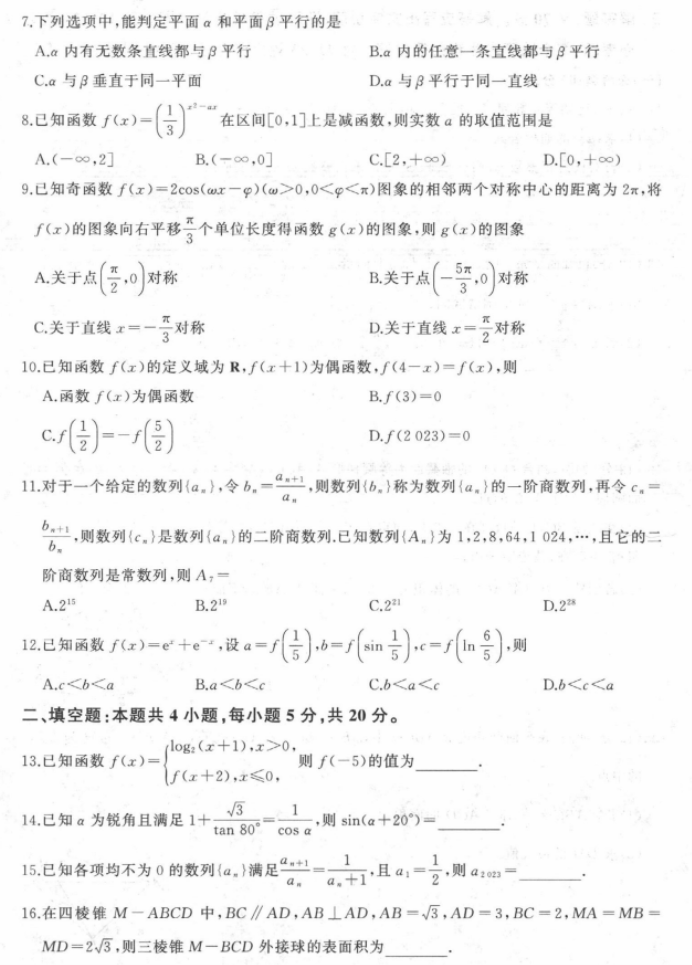 7.下列选项中,能判定平面 α 和平面 β 平行的是
A.α 内有无数条直线都与 β 平行 B.α 内的任意一条直线都与 β 平行
C.α 与 β 垂直于同一平面 D.α 与 β 平行于同一直线
8.已知函数 f(x)=(1/3)^(x²-ax) 在区间[0,1]上是减函数,则实数 a 的取值范围是
A.(-∞,2] B.(-∞,0] C.[2,+∞) D.[0,+∞)
9.已知奇函数 f(x)=2cos(ωx-φ)(ω>0,0<φ<π)图象的相邻两个对称中心的距离为 2π,将
f(x)的图象向右平移 π/3 个单位长度得函数 g(x)的图象,则 g(x)的图象
A.关于点(π/2,0)对称 B.关于点(-5π/3,0)对称
C.关于直线 x=-π/3 对称 D.关于直线 x=π/2 对称
10.已知函数 f(x)的定义域为 R,f(x+1)为偶函数,f(4-x)=f(x),则
A.函数 f(x)为偶函数 B.f(3)=0
C.f(1/2)=-f(5/2) D.f(2 023)=0
11.对于一个给定的数列{aₙ},令 bₙ=aₙ₊₁/aₙ,则数列{bₙ}称为数列{aₙ}的一阶商数列,再令 cₙ=
bₙ₊₁/bₙ,则数列{cₙ}是数列{aₙ}的二阶商数列.已知数列{Aₙ}为 1,2,8,64,1 024,…,且它的二
阶商数列是常数列,则 A₇=
A.2¹⁵ B.2¹⁹ C.2²¹ D.2²⁸
12.已知函数 f(x)=eˣ+e⁻ˣ,设 a=f(1/5),b=f(sin 1/5),c=f(ln 6/5),则
A.c<b<a B.a<b<c C.b<a<c D.b<c<a
二、填空题:本题共 4 小题,每小题 5 分,共 20 分。
13.已知函数 f(x)={log₂(x+1),x>0, f(x+2),x≤0, 则 f(-5)的值为______.
14.已知 α 为锐角且满足 1+√3/tan 80°=1/cos α,则 sin(α+20°)=______.
15.已知各项均不为 0 的数列{aₙ}满足 aₙ₊₁/aₙ=1/(aₙ+1),且 a₁=1/2,则 a₂₀₂₃=______.
16.在四棱锥 M-ABCD 中,BC∥AD,AB⊥AD,AB=√3,AD=3,BC=2,MA=MB=
MD=2√3,则三棱锥 M-BCD 外接球的表面积为______.